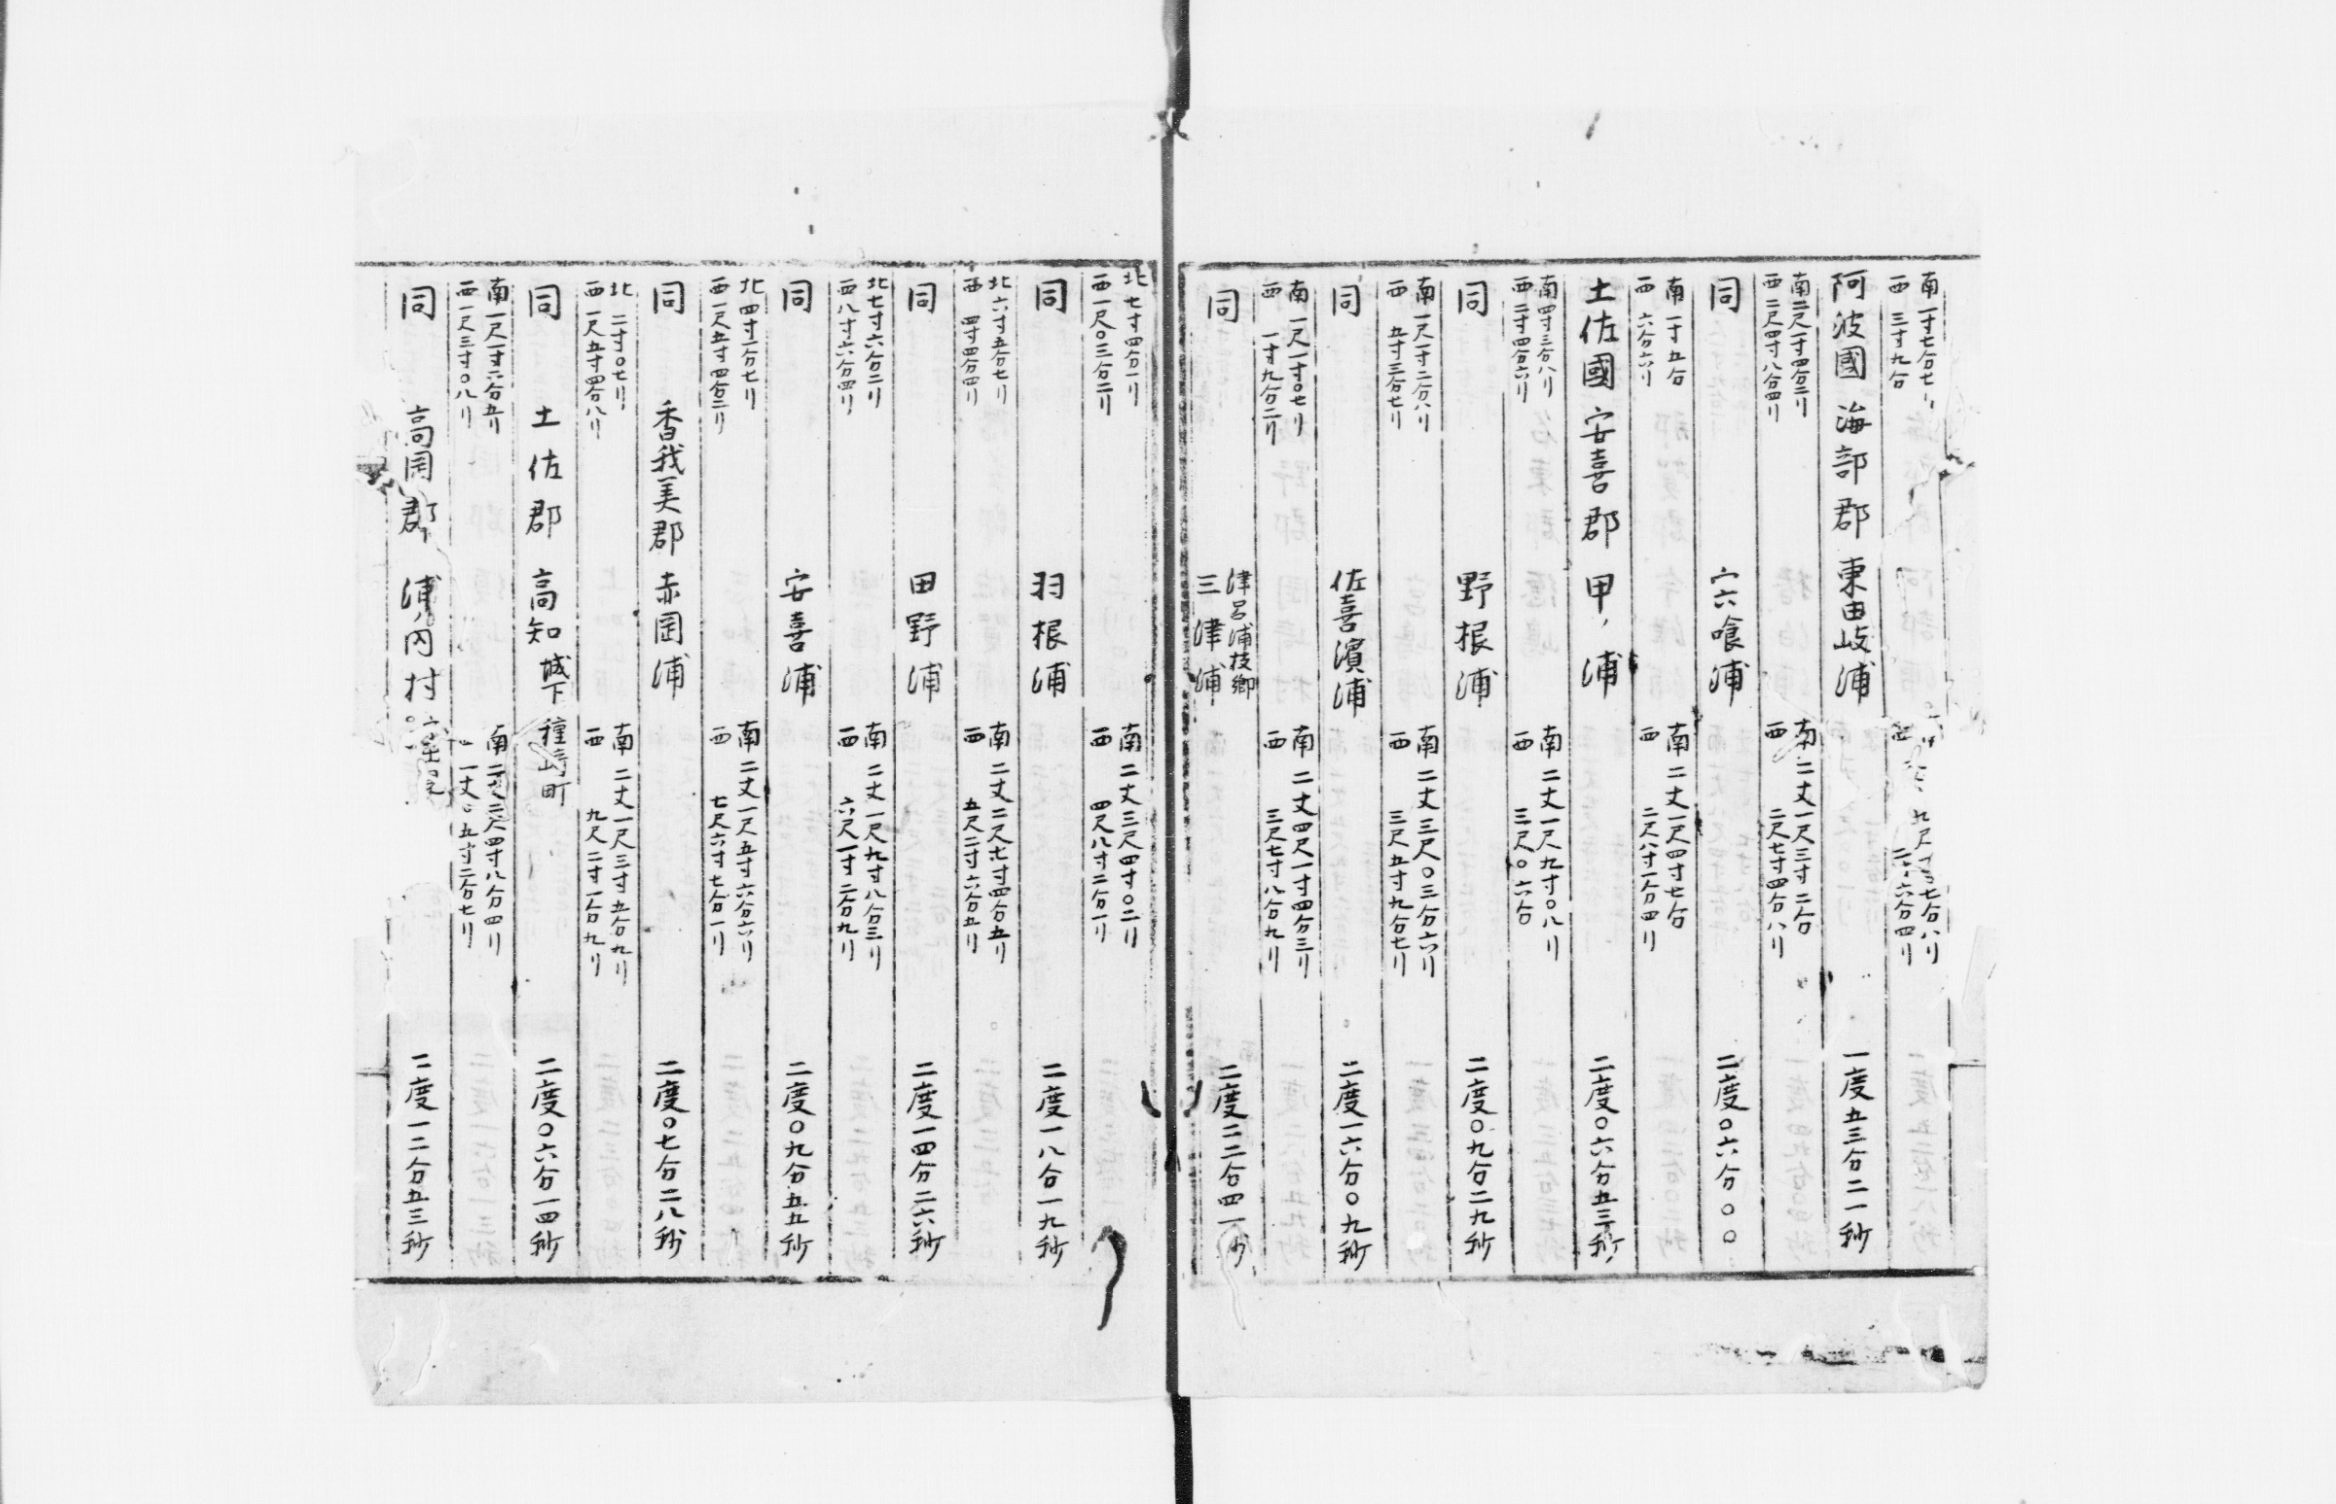 南一寸七分七リ
西三寸九分
九尺
七分八リ
六分四リ
阿波國 海部郡 東由岐浦 一度五三分二一秒
南二尺一寸四分二リ
西二尺四寸八分四リ
南二丈一尺三寸二分
西二尺七寸四分八リ
同 宍喰浦 二度〇六分〇〇
南一寸五分
西六分六リ
南二丈一尺四寸七分
西二尺八寸一分四リ
土佐國 安喜郡 甲ノ浦 二度〇六分五三秒
南四寸三分八リ
西二寸四分六リ
南二丈一尺九寸〇八リ
西三尺〇六分
同 野根浦 二度〇九分二九秒
南一尺一寸二分八リ
西五寸三分七リ
南二丈三尺〇三分六リ
西三尺五寸九分七リ
同 佐喜濱浦 二度一六分〇九秒
南一尺一寸〇七リ
西一寸九分二リ
南二丈四尺一寸四分三リ
西三尺七寸八分九リ
同 津呂浦枝郷 三津浦 二度二二分四一秒
北七寸四分一リ
西一尺〇三分二リ
南二丈三尺四寸〇二リ
西四尺八寸二分一リ
同 羽根浦 二度一八分一九秒
北六寸五分七リ
西四寸四分四リ
南二丈二尺七寸四分五リ
西五尺二寸六分五リ
同 田野浦 二度一四分二六秒
北七寸六分二リ
西八寸六分四リ
南二丈一尺九寸八分三リ
西六尺一寸二分九リ
同 安喜浦 二度〇九分五五秒
北四寸一分七リ
西一尺五寸四分二リ
南二丈一尺五寸六分六リ
西七尺六寸七分一リ
同 香我美郡 赤岡浦 二度〇七分二八秒
北二寸〇七リ
西一尺五寸四分八リ
南二丈一尺三寸五分九リ
西九尺二寸一分九リ
同 土佐郡 高知城下種崎町 二度〇六分一四秒
南一尺一寸二分五リ
西一尺三寸〇八リ
南二丈二尺四寸八分四リ
一丈〇五寸二分七リ
同 高岡郡 浦ノ内村 二度一二分五三秒